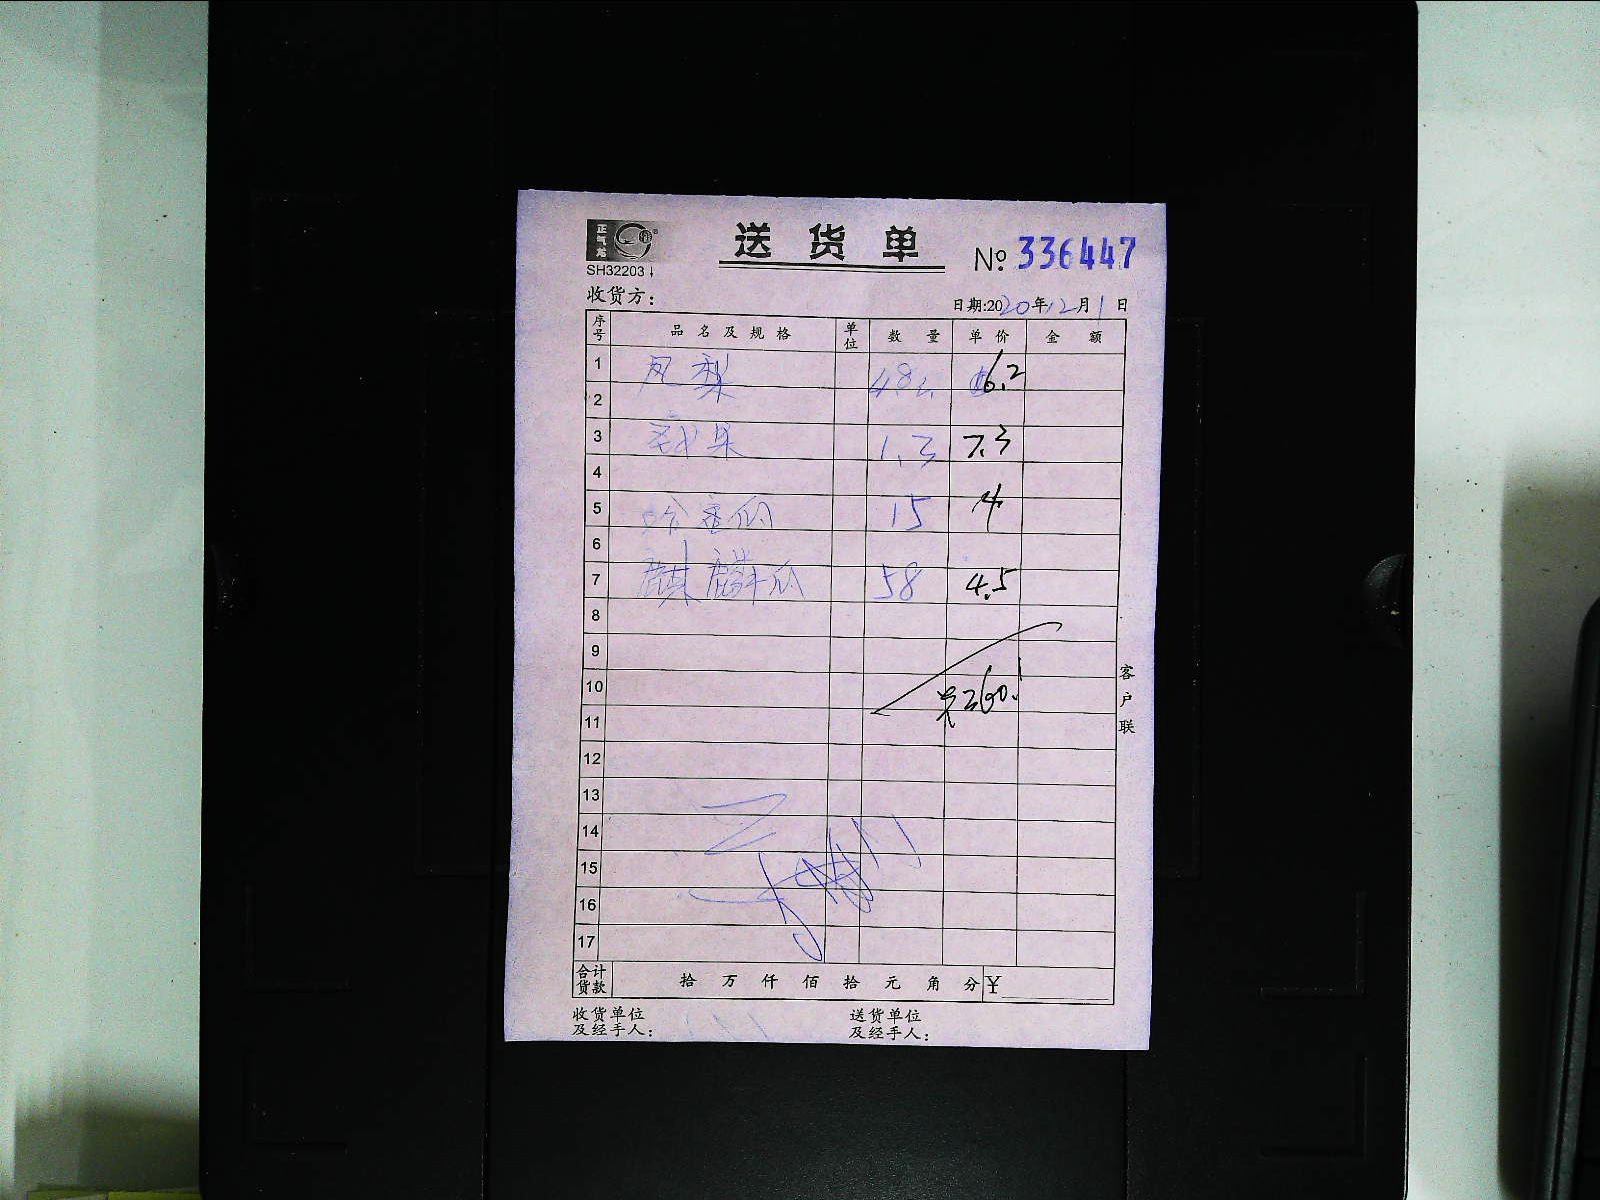 正气龙
SH32203
送货单
No. 336447
收货方：
日期:2020年12月1日
序号 品名及规格 单位 数量 单价 金额
1 凤梨 6.2
2
3 1.3 7.3
4
5 哈蜜瓜 15 4
6
7 麒麟瓜 58 4.5
8
9
10 360.1
11
12
13
14
15
16
17
客户联
合计货款 拾 万 仟 佰 拾 元 角 分 ¥
收货单位及经手人：
送货单位及经手人：